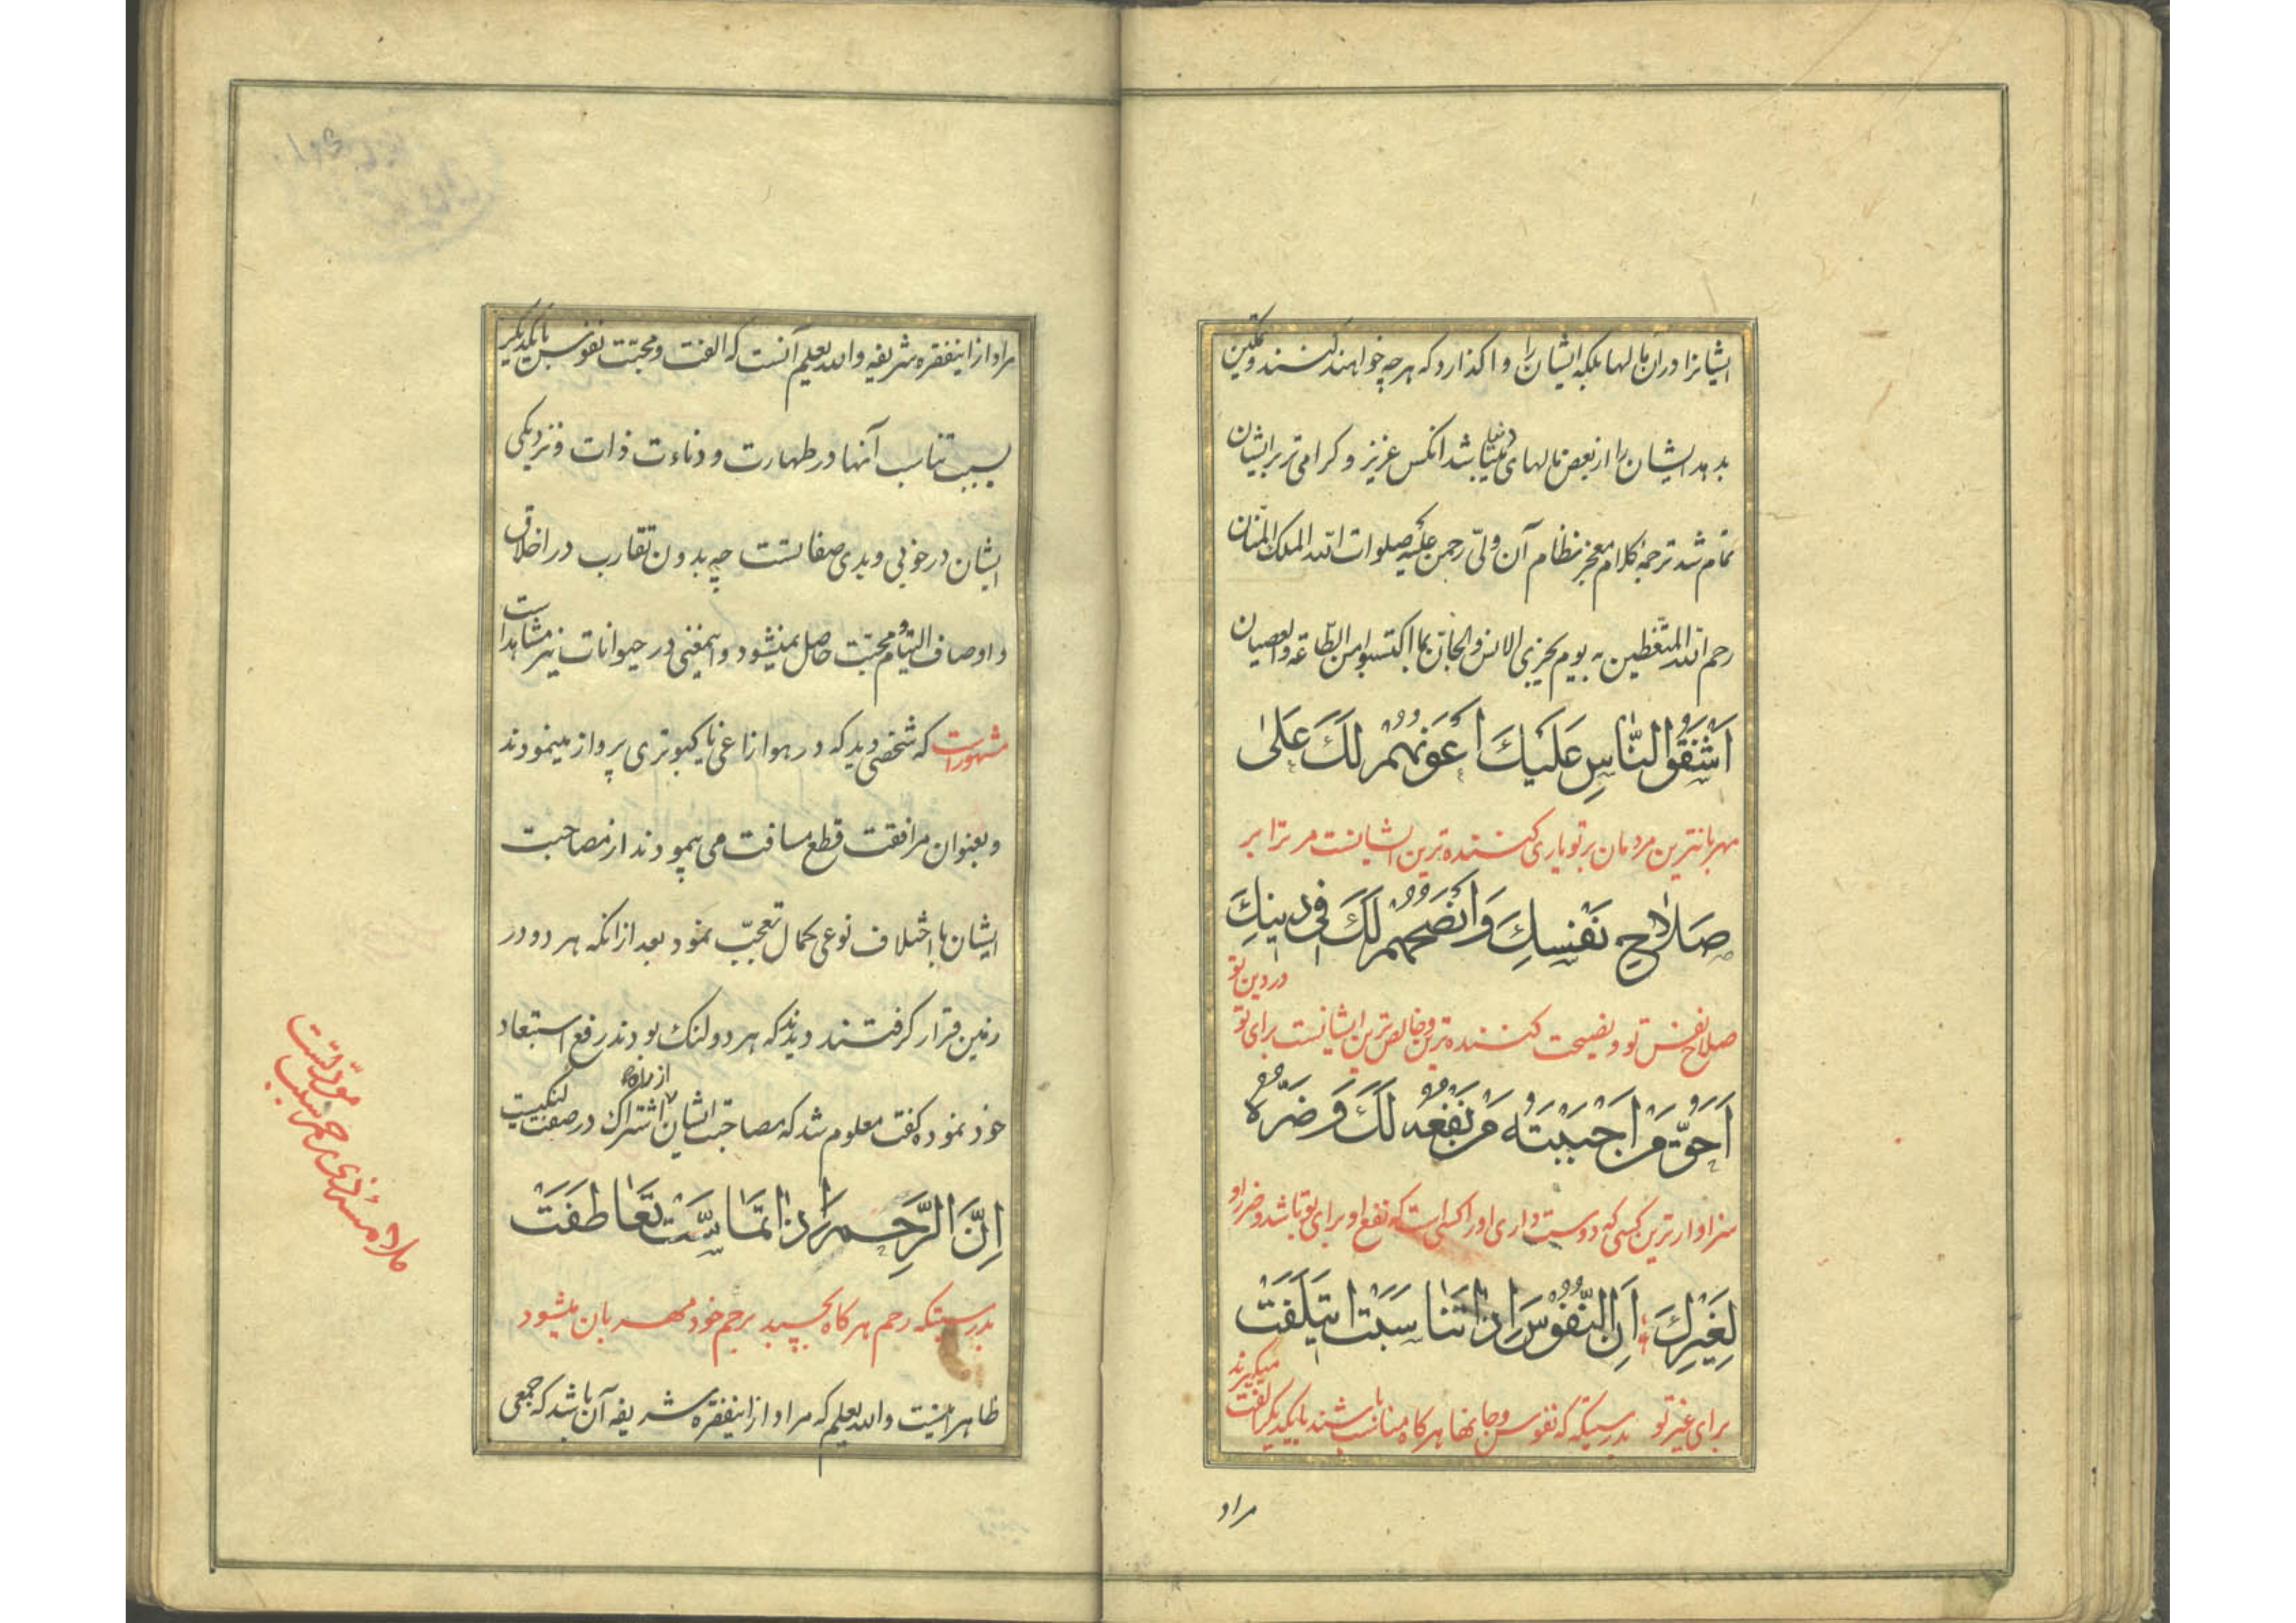 ایشانرا در آن مالها بلکه ایشان را واگذارد که هر چه خواهند کنند و تمکین
بدهد ایشان را از بعض مالهای دنیا باشد آنکس عزیز و کرامی تر بر ایشان
تمام شد ترجمهٔ کلام معجز نظام آن ولیّ رحمن علیه صلوات الله الملک المنّان
رحم الله المتّعظین به یوم یجزی الانس والجانّ بما اکتسبوا من الطّاعة والعصیان
اَشْفَقُ النّاسِ عَلَیْكَ اَعْوَنُهُمْ لَكَ عَلیٰ
مهربانترین مردمان بر تو یاری کننده ترین ایشانست مر ترا بر
صَلاٰحِ نَفْسِكَ وَاَنْصَحُهُمْ لَكَ فی دینِكَ
در دین تو
صلاح نفس تو و نصیحت کننده ترین و خالص ترین ایشانست برای تو
اَحَقُّ مَنْ اَحْبَبْتَهُ مَنْ نَفْعُهُ لَكَ وَ ضَرُّهُ
سزاوارترین کسی که دوست داری او را کسی است که نفع او برای تو باشد و ضرر او
لِغَیْرِكَ اِنَّ النُّفُوْسَ اِذٰا تَنٰاسَبَتْ ایتَلَفَتْ
میکیرند
برای غیر تو بدرستیکه که نفوس و جانها هر کاه مناسب باشند با یکدیکر الفت
مراد
مراد از اینفقره شریفه والله یعلم آنست که الفت و محبّت نفوس با یکدیکر
بسبب تناسب آنها در طهارت و دناءت ذات و نزدیکی
ایشان در خوبی و بدی صفاتست چه بدون تقارب در اخلاق
و اوصاف التیام و محبّت حاصل نمیشود و اینمعنی در حیوانات نیز مشاهد است
مشهور است که شخصی دید که در هوا زاغی با کبوتری پرواز مینمودند
و بعنوان مرافقت قطع مسافت می پیمودند از مصاحبت
ایشان با اختلاف نوعی کمال تعجّب نمود بعد از آنکه هر دو در
زمین قرار کرفتند دیدند که هر دو لنک بودند رفع استبعاد
خود نموده کفت معلوم شد که مصاحبت ایشان از راه اشتراک در صفت لنکیست
اِنَّ الرَّحِمَ اِذٰا تَمٰاسَّتْ تَعٰاطَفَتْ
بدرستیکه رحم هر کاه بچسبد برحم خود مهربان میشود
ظاهر اینست والله یعلم که مراد از اینفقره شریفه آن باشد که جمعی